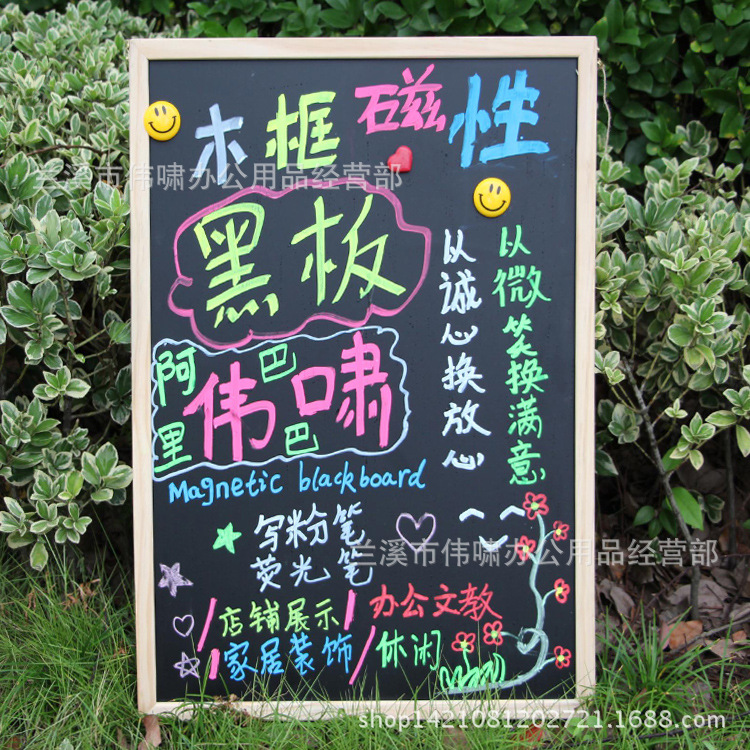 木框磁性
兰溪市伟啸办公用品经营部
黑板
以微笑换满意
以诚心换放心
阿里巴巴
伟啸
Magnetic blackboard
写粉笔
荧光笔
兰溪市伟啸办公用品经营部
/店铺展示/办公文教
/家居装饰/休闲
shop1421081202721.1688.com